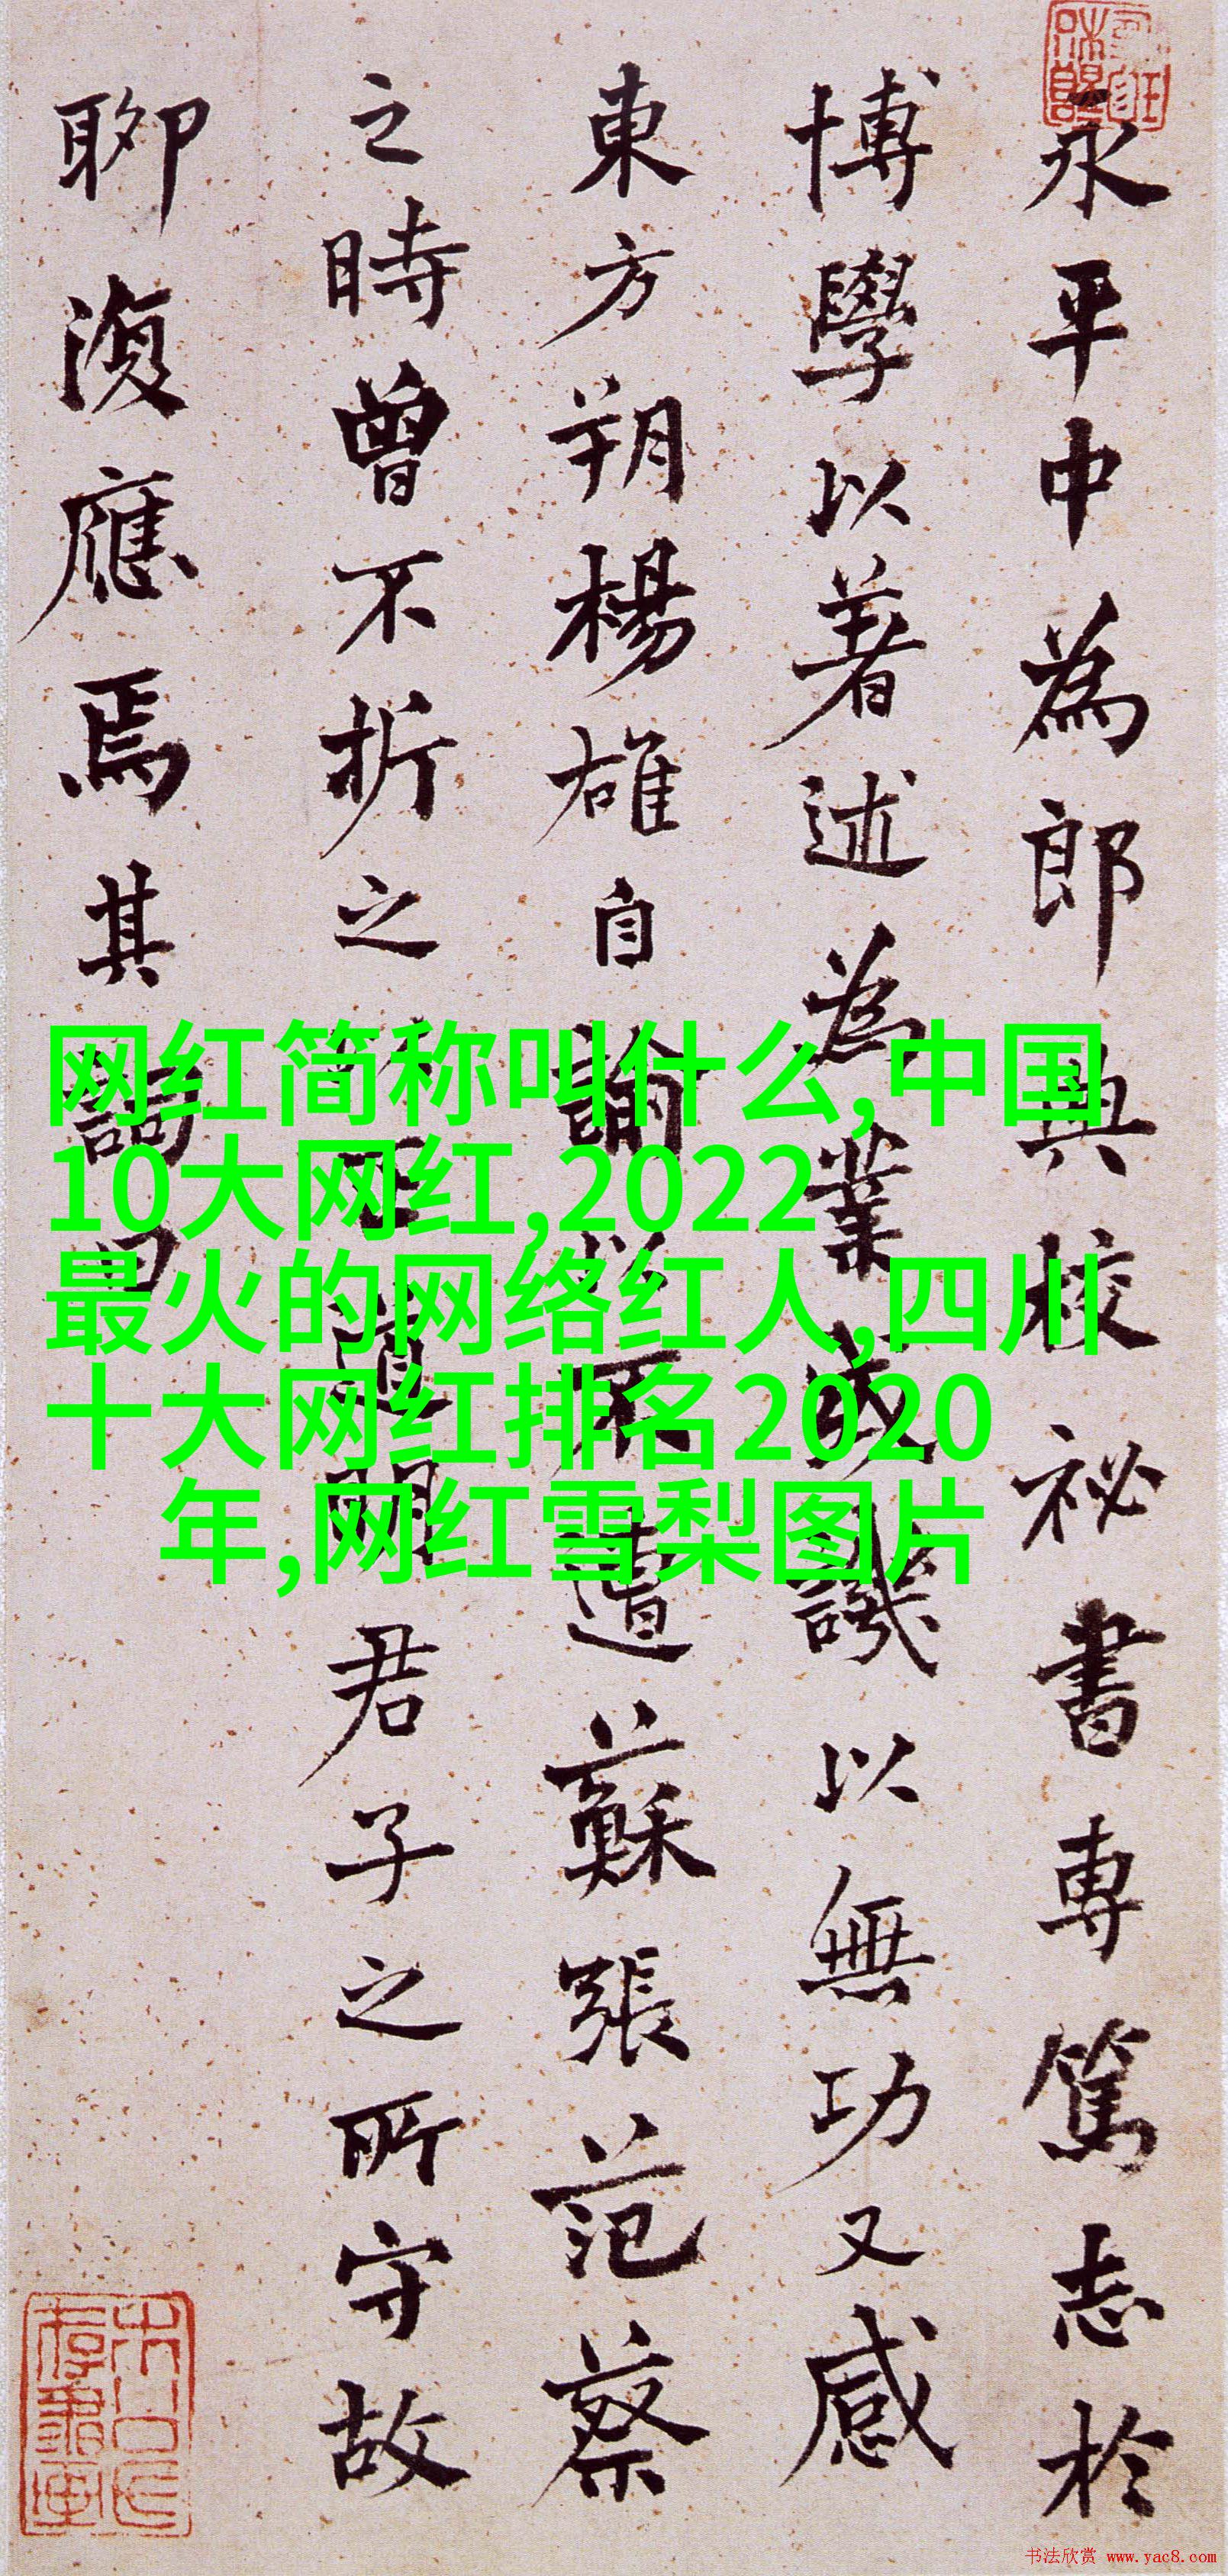 永平中為郎典校祕書專篤志於
博學以著述為業或譏以無功又感
東方朔楊雄自諭以不遭蘇張范蔡
之時曾不折之以正道明君子之所守故
聊復應焉其詞曰
网红简称叫什么,中国
10大网红,2022
最火的网络红人,四川
十大网红排名2020
年,网红雪梨图片
书法欣赏 www.yac8.com